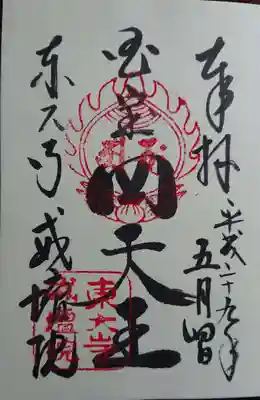 奉拝
平成二十九年
五月四日
国宝四天王
東大寺戒壇院
東大寺
戒壇院